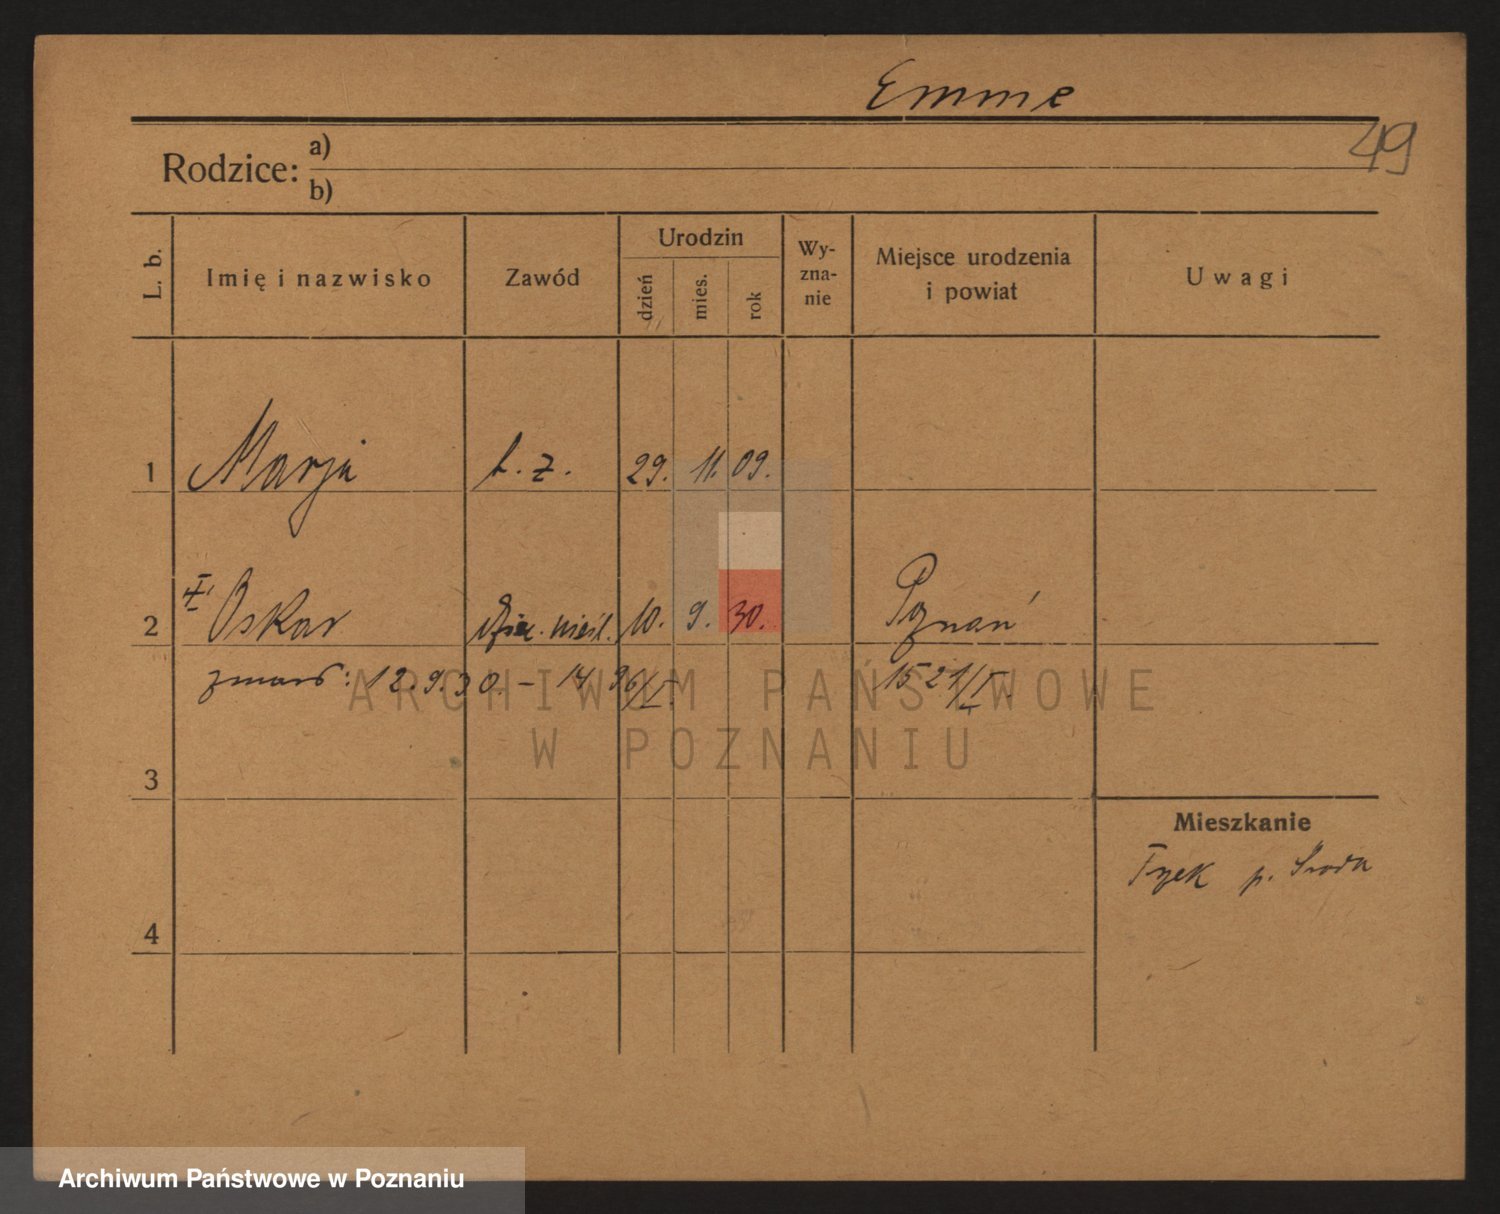 Emme
49
Rodzice: a)
b)
L. b. Imię i nazwisko Zawód Urodzin dzień mies. rok Wy-zna-nie Miejsce urodzenia i powiat Uwagi
1 Marja b. z. 29. 11. 09.
2 Oskar 10. 9. 30. Poznań
zmarł: 12.9.30. – 1496/I. 1521/I.
3
Mieszkanie
p. Środa
4
ARCHIWUM PAŃSTWOWE
W POZNANIU
Archiwum Państwowe w Poznaniu